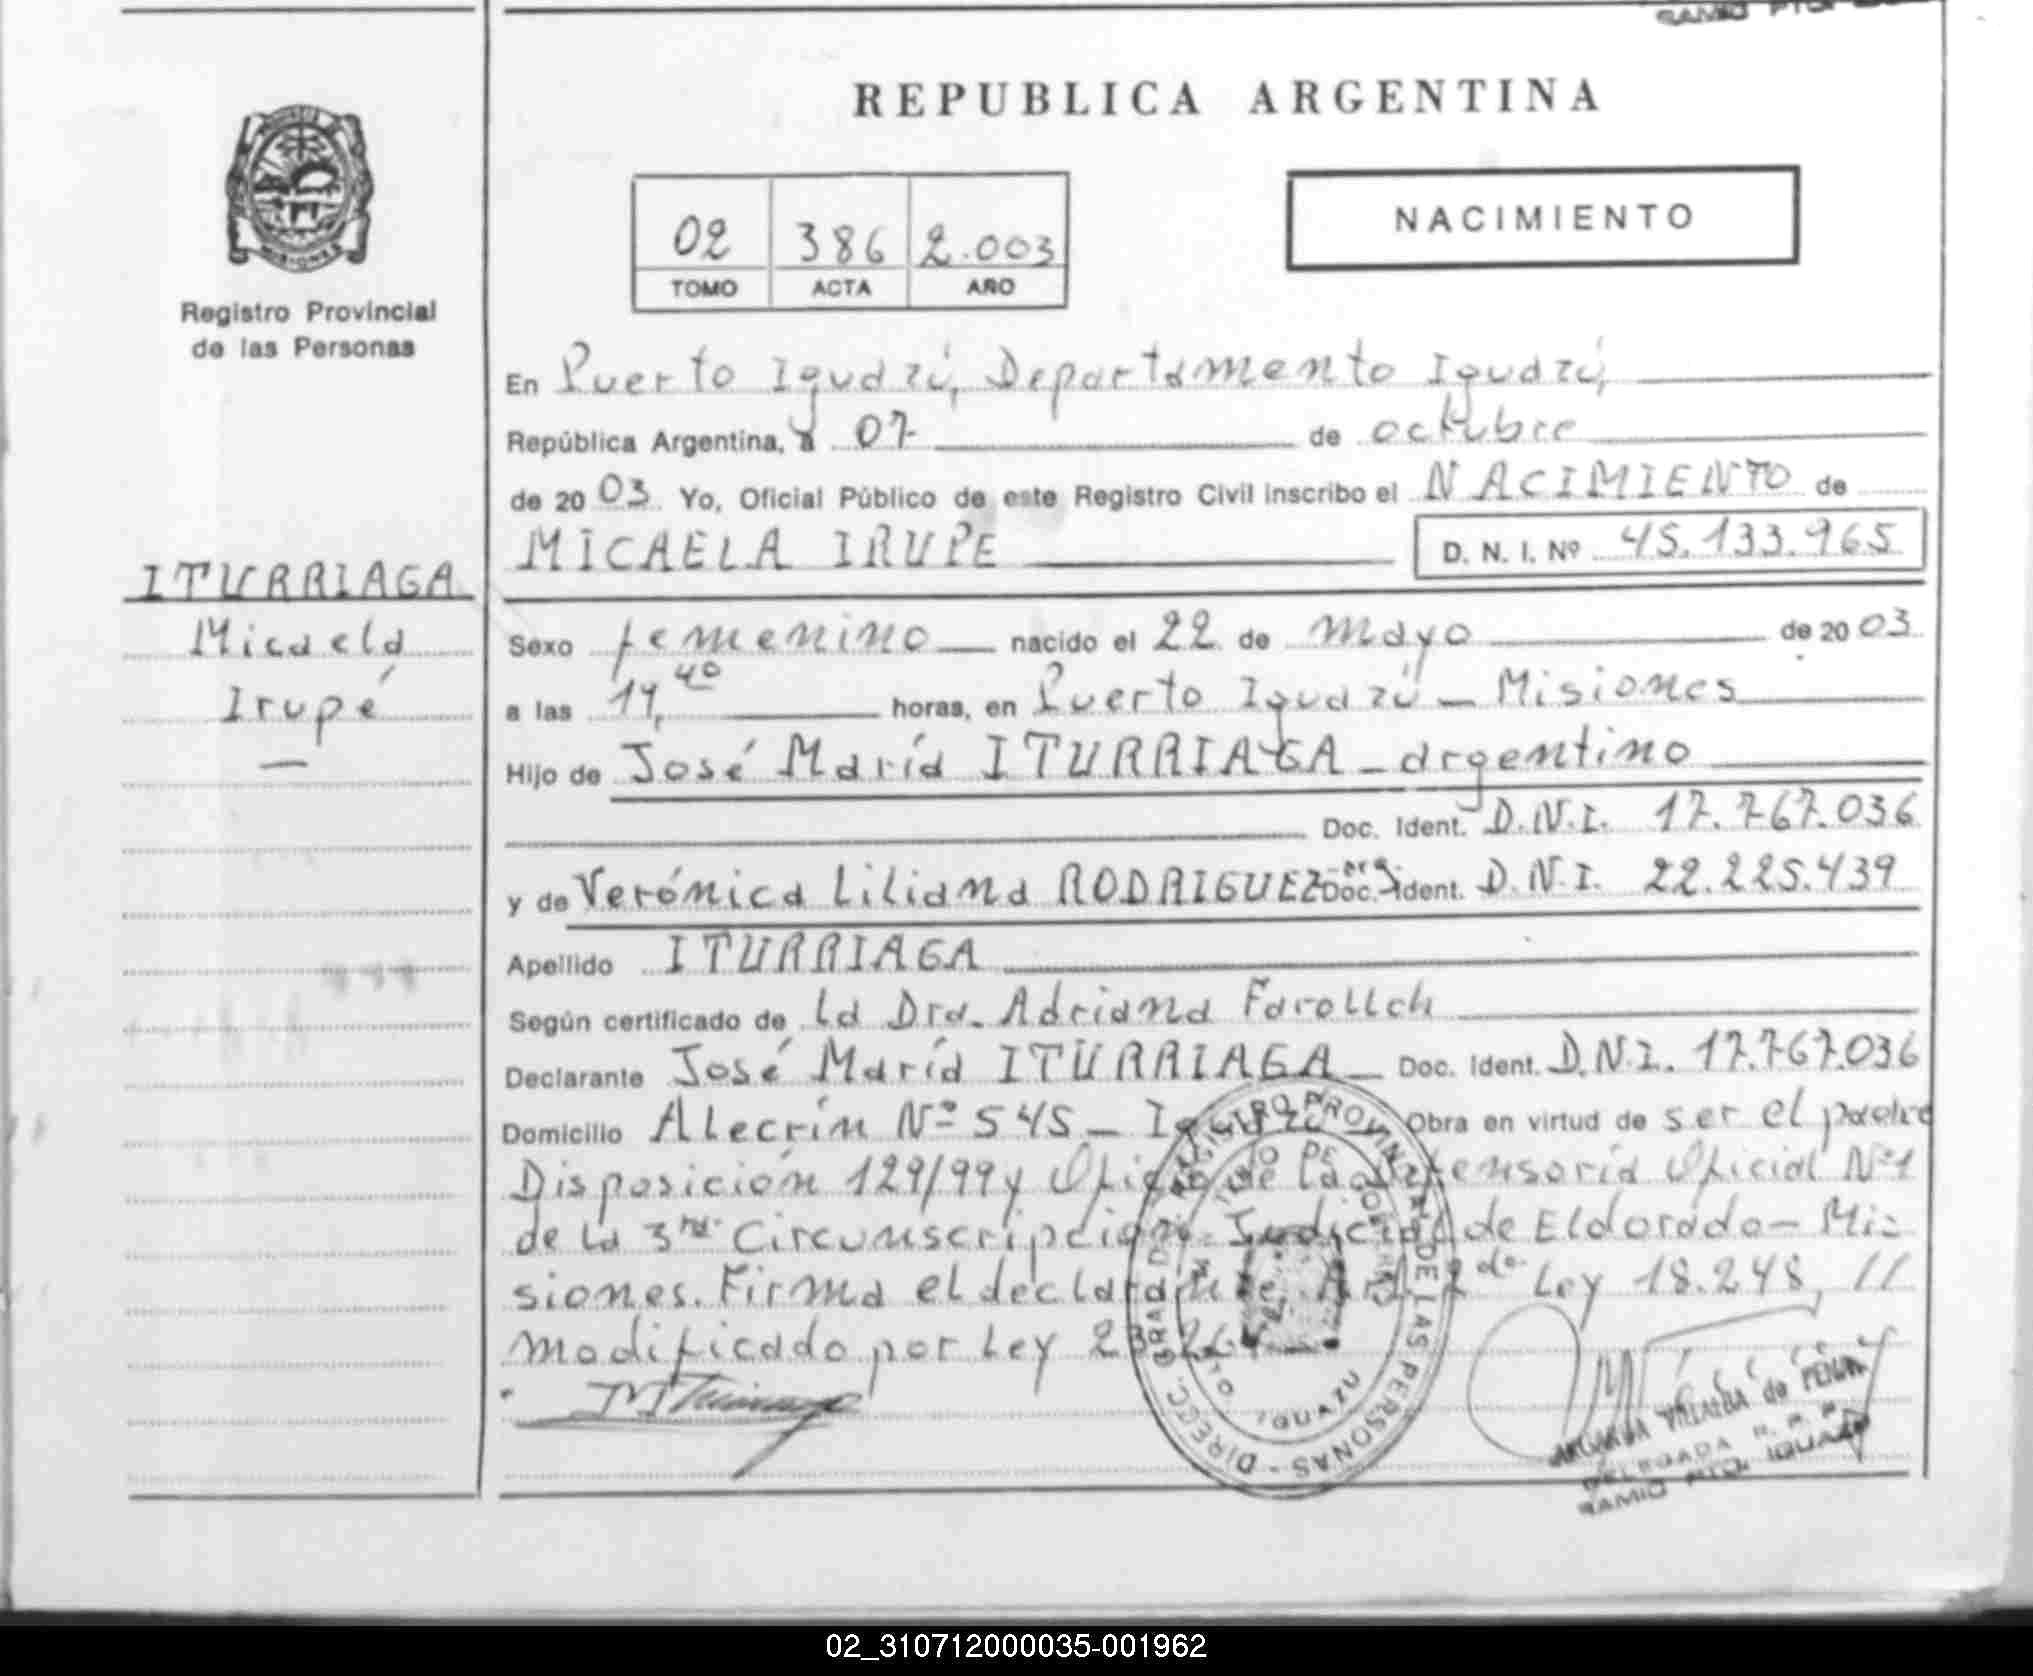 REPUBLICA ARGENTINA
MISIONES
Registro Provincial
de las Personas
02 386 2.003
TOMO ACTA AÑO
NACIMIENTO
En Puerto Iguazú, Departamento Iguazú,
República Argentina, a 07 de octubre
de 2003 Yo, Oficial Público de este Registro Civil inscribo el NACIMIENTO de
MICAELA IRUPE D. N. I. Nº 45.133.965
ITURRIAGA
Micaela
Irupé
Sexo femenino nacido el 22 de mayo de 2003
a las horas, en Puerto Iguazú - Misiones
Hijo de José María ITURRIAGA - argentino
Doc. Ident. D.N.I. 17.767.036
y de Verónica Liliana RODRIGUEZ - arg. Doc. Ident. D.N.I. 22.225.439
Apellido ITURRIAGA
Según certificado de la Dra. Adriana
Declarante José María ITURRIAGA - Doc. Ident. D.N.I. 17.767.036
Domicilio Alecrín Nº 545 - Iguazú Obra en virtud de ser el padre
Disposición 129/99 y Oficio de la Defensoría Oficial Nº 1
de la 3ra Circunscripción Judicial de Eldorado - Mi-
siones. Firma el declarante. Ley 18.248, //
modificado por Ley
DIREC. GRAL. DE REGISTRO PROVINCIAL DE LAS PERSONAS
VILLALBA de
DELEGADA R. P. P.
SAMIC PTO. IGUAZU
02_310712000035-001962